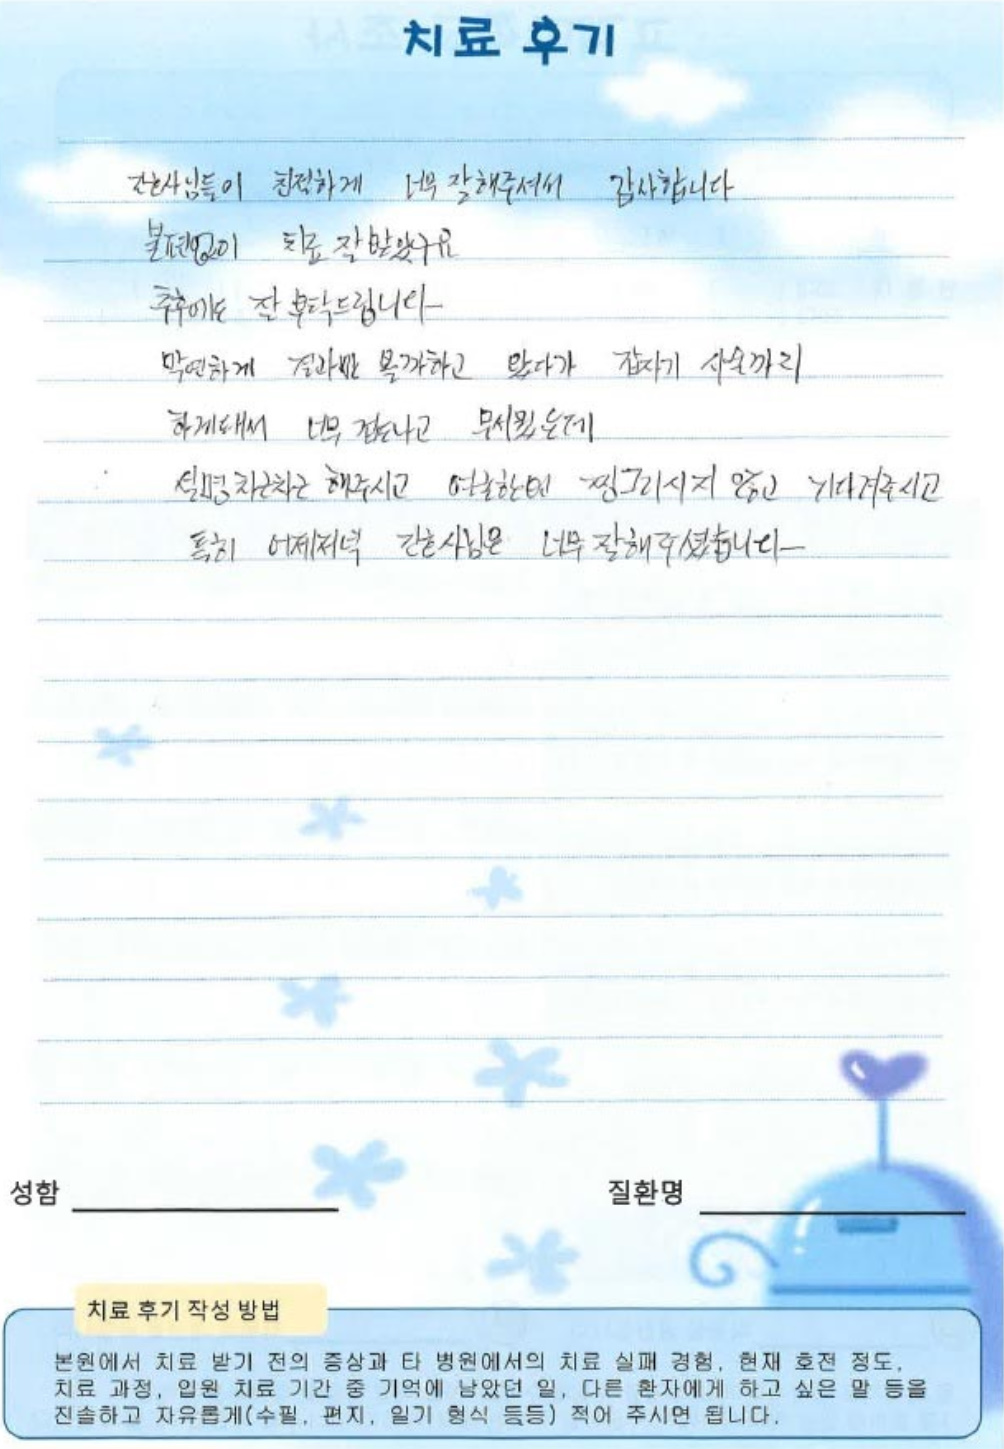 치료 후기
간호사님들이 친절하게 너무 잘해주셔서 감사합니다
불편없이 치료 잘 받았구요
추후에도 잘 부탁드립니다
막연하게 결과만 볼까하고 왔다가 갑자기 수술까지
하게돼서 너무 겁나고 무서웠는데
설명 차근차근 해주시고 찡그리시지 않고 기다려주시고
특히 어제저녁 간호사님은 너무 잘해주셨습니다
성함
질환명
치료 후기 작성 방법
본원에서 치료 받기 전의 증상과 타 병원에서의 치료 실패 경험, 현재 호전 정도,
치료 과정, 입원 치료 기간 중 기억에 남았던 일, 다른 환자에게 하고 싶은 말 등을
진솔하고 자유롭게(수필, 편지, 일기 형식 등등) 적어 주시면 됩니다.